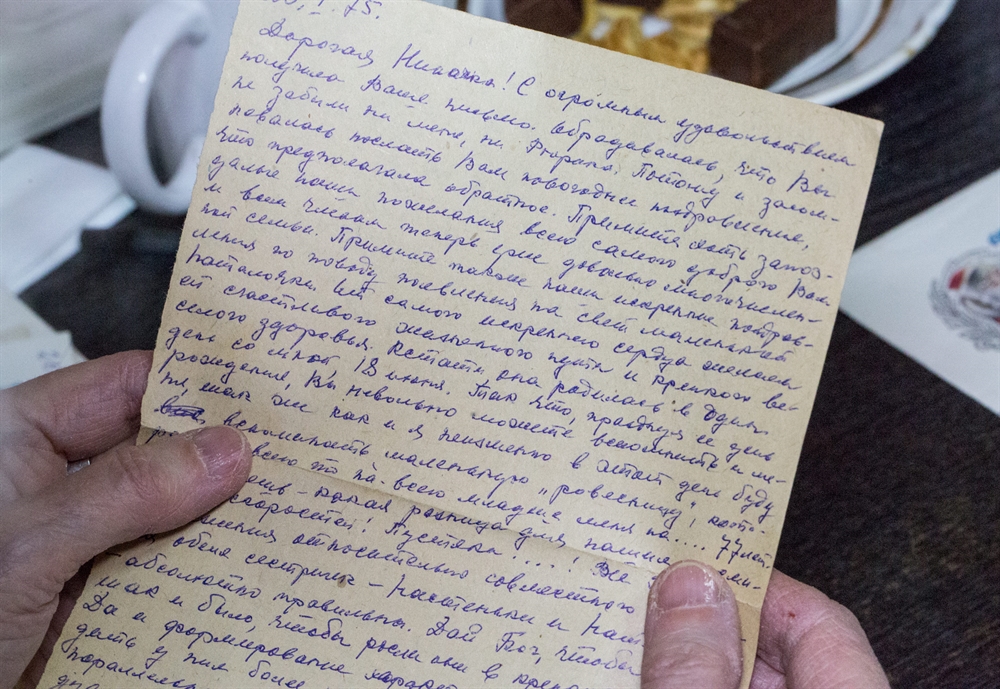 .I.75.
Дорогая Ниночка! С огромным удовольствием
получила Ваше письмо. Обрадовалась, что Вы
не забыли ни меня, ни Рюрика. Потому и запоз-
что предполагала обратное. Примите хоть запоз-
далые наши пожелания всего самого доброго Вам
и всем членам теперь уже довольно многочислен-
ной семьи. Примите также наши искренние поздрав-
ления по поводу появления на свет маленькой
От самого искреннего сердца желаем
ей счастливого жизненного пути и крепкого ве-
селого здоровья. Кстати она родилась в один
день со мной, 18 июня. Так что, празднуя ее день
рождения, Вы невольно можете вспомнить и ме-
ня, так же как и я неизменно в этот день буду
вспоминать маленькую „ровесницу", кото-
всего то на всего младше меня на.... 77 лет.
какая разница для наших косми-
скоростей! Пустяки ....! Ве
относительно совместного
обеих сестричек - Настеньки и
абсолютно правильны. Дай Бог, чтобы
так и было, чтобы росли они в
Да и формирование
деть у них более